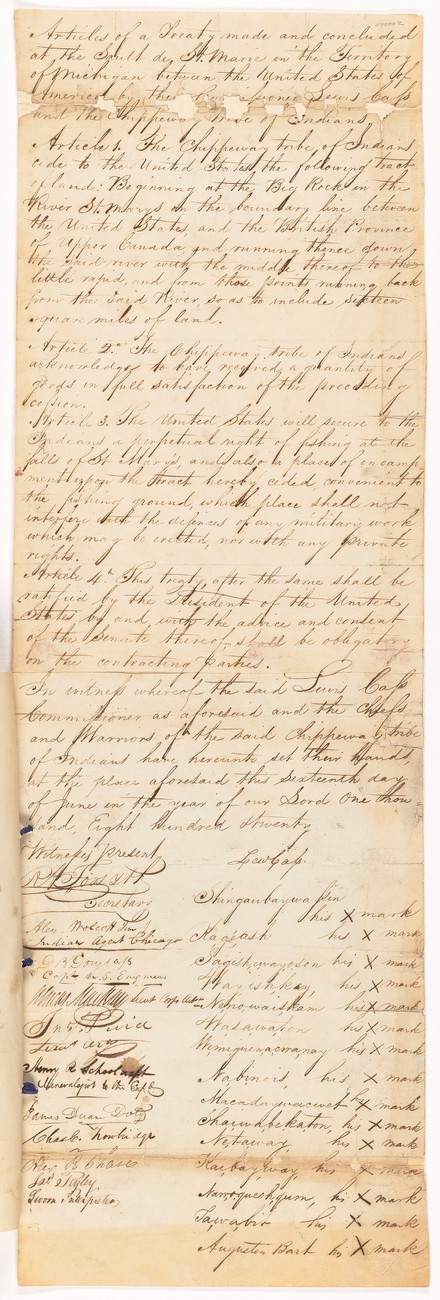 000002
Articles of a Treaty made and concluded
at the Sault de St. Marie in the Territory
of Michigan between the United States of
America by their Commissioner Lewis Cass
and the Chippeway tribe of Indians
Article 1. The Chippeway tribe of Indians
cede to the United States, the following tract
of land: Beginning at the Big Rock in the
River St. Marys on the boundary line between
the United States, and the British Province
of Upper Canada and running thence down
the said river with the middle thereof to the
little rapid, and from those points running back
from the said River, so as to include sixteen
square miles of land.
Article 2. The Chippeway tribe of Indians
acknowledge to have received a quantity of
goods in full satisfaction of the preceeding
cession.
Article 3. The United States will secure to the
Indians a perpetual right of fishing at the
falls of St Mary's, and also a place of encamp
ment upon the tract hereby ceded convenient to
the fishing ground, which place shall not
interfere with the defences of any military work
which may be erected, nor with any private
rights.
Article 4th This treaty, after the same shall be
ratified by the President of the United
States by and, with the advice and consent
of the Senate thereof shall be obligatory
on the contracting parties.
In witness whereof the said Lewis Cass
Commissioner as aforesaid and the chiefs
and Warriors of the said Chippeway tribe
of Indians have hereunto set their Hands,
at the place aforesaid this sixteenth day
of June in the year of our Lord One thou=
sand, Eight Hundred & twenty
Witnesses Present
Lew Cass.
Secretary
Shingaubaywassin
his X mark
Alex Wolcott Jun
Indian Agent Chicago
Kageash his X mark
D B Douglass
Capt U.S. Engineers
Sagishewayoson his X mark
Wayishkey, his X mark
Aeneas Mackay Lieut Corps Art
Nenowaiskam his X mark
Wasawaton his X mark
Wemiguenacwanay his X mark
Nabinois, his X mark
Henry R Schoolcraft
Mineralogist to the Expn
Macadaywacwet his X mark
James Duane Doty
Shaiwabekaton, his X mark
Chas C. Trowbridge
Netaway, his X mark
Alex R Chase
Kaibayway, his X mark
Jas Ryley
Sworn Interpreter
Nawoquesequm, his X mark
Tawabit his X mark
Augustin Bart his X mark